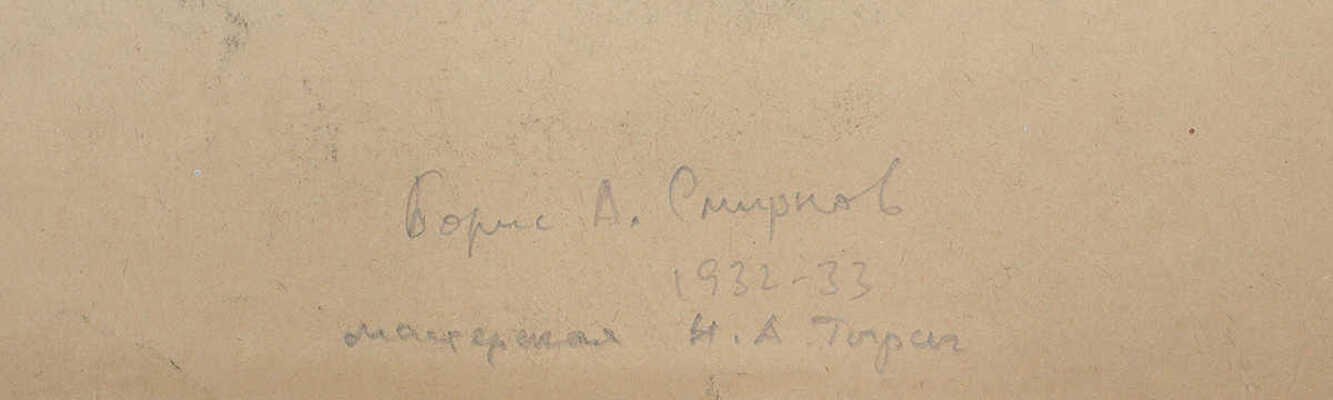 Борис А. Смирнов
1932-33
мастерская Н. А Тырсы